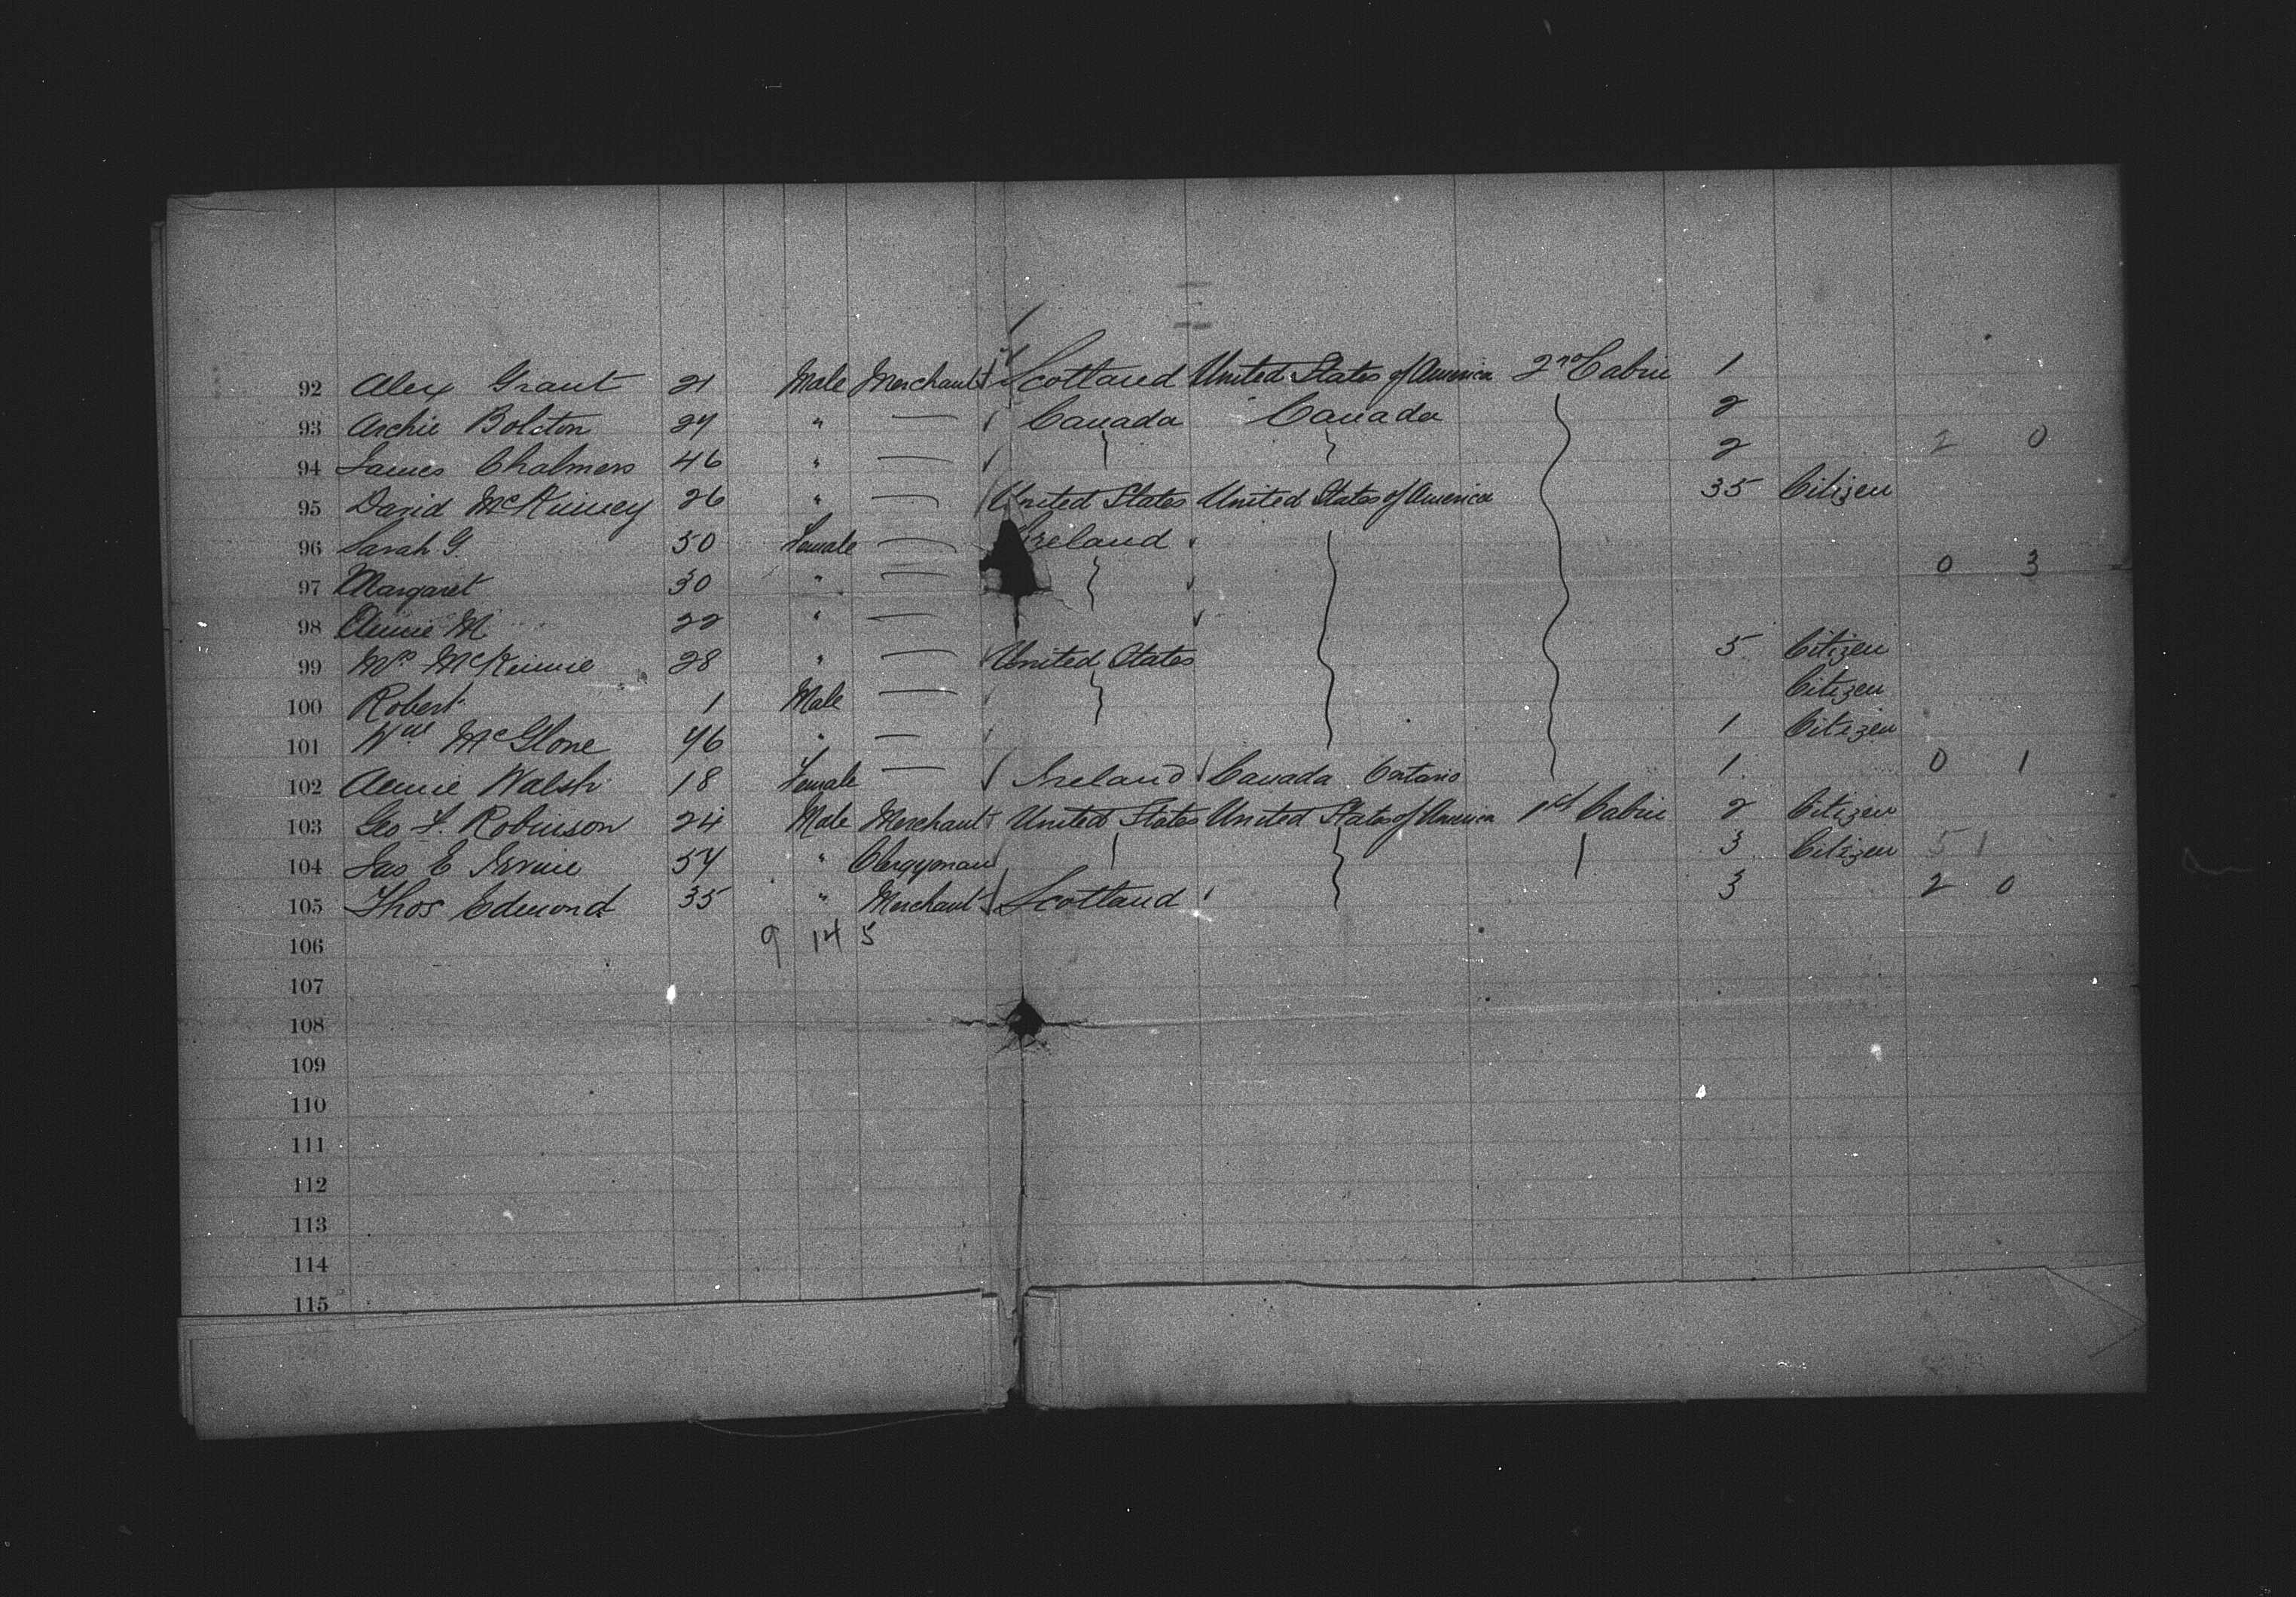 92 Alex Grant 21 Male Merchant Scotland United States of America 2nd Cabin 1
93 Archie Bolston 27 " — Canada Canada 2
94 James Chalmers 46 " — 2 2 0
95 David McKinney 26 " — United States United States of America 35 Citizen
96 Sarah G. 50 Female — Ireland
97 Margaret 30 " — 0 3
98 Annie M. 22 " —
99 Mrs McKinnie 28 " — United States 5 Citizen
100 Robert 1 Male — Citizen
101 Wm McGlone 46 " — 1 Citizen
102 Annie Walsh 18 Female — Ireland Canada Ontario 1 0 1
103 Geo F. Robinson 24 Male Merchant United States United States of America 1st Cabin 2 Citizen
104 Jas E 54 " Clergyman 3 Citizen 5 1
105 Thos Edmond 35 " Merchant Scotland 3 2 0
106 9 14 5
107
108
109
110
111
112
113
114
115